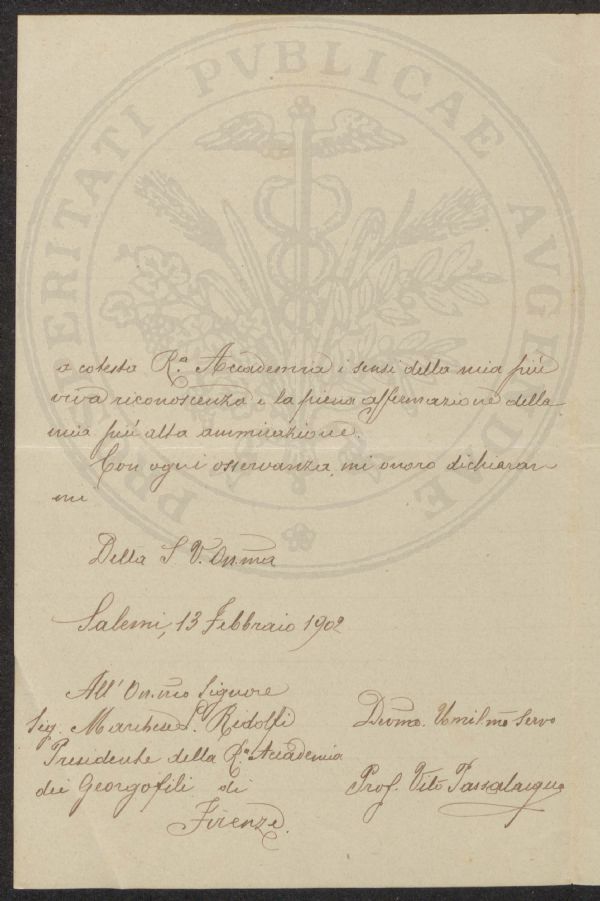 PROSPERITATI PVBLICAE AVGENDAE
a cotesta R.ª Accademia i sensi della mia più
viva riconoscenza e la piena affermazione della
mia più alta ammirazione.
Con ogni osservanza mi onoro dichiarar
mi
Della S. V. On.ma
Salemi, 13 Febbraio 1902
All' On.mo Signore
Sig. Marchese Ridolfi
Presidente della R.ª Accademia
dei Georgofili di
Firenze.
Devmo. Umilmo Servo
Prof. Vito Passalacqua